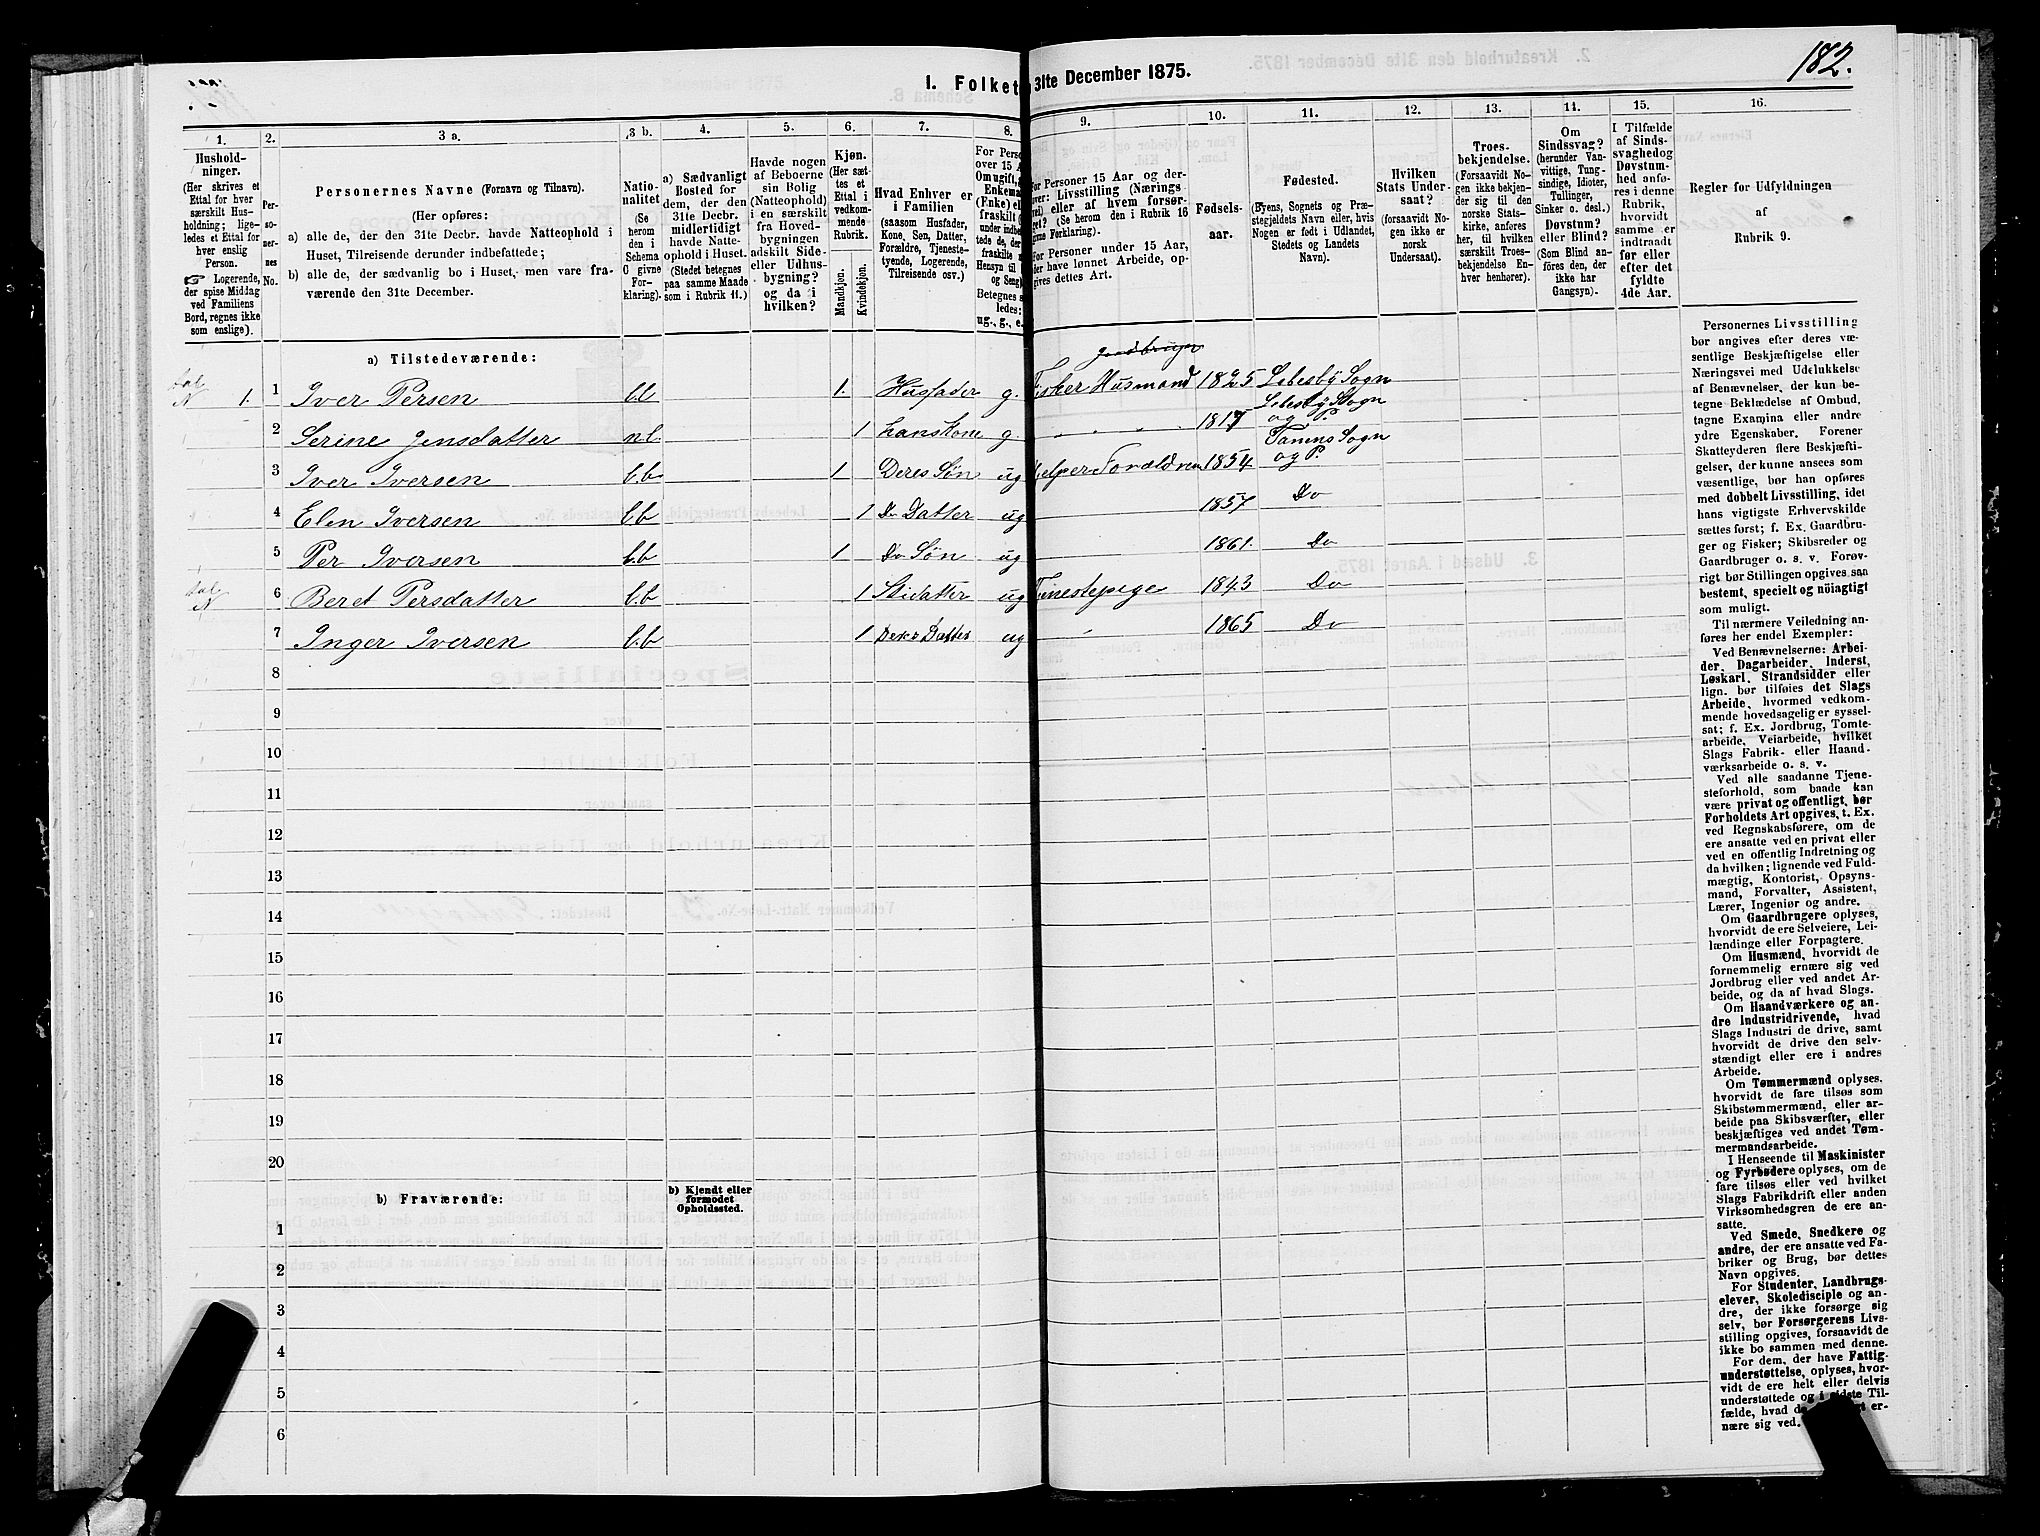 182.
I. Folket
31te December 1875.
1.
2.
3 a.
3 b.
4.
5.
6.
7.
8.
9.
10.
11.
12.
13.
14.
15.
16.
Hushold-
ninger.
(Her skrives et
Ettal for hver
særskilt Hus-
holdning; lige-
ledes et Ettal for
hver enslig
Person.
☞ Logerende,
der spise Middag
ved Familiens
Bord, regnes ikke
som enslige).
Per-
so-
ner-
nes
No.
Personernes Navne (Fornavn og Tilnavn).
(Her opføres:
a) alle de, der den 31te Decbr. havde Natteophold i
Huset, Tilreisende derunder indbefattede;
b) alle de, der sædvanlig bo i Huset, men vare fra-
værende den 31te December.
Natio-
nalitet
(Se
herom
den i
Schema
O givne
For-
klaring).
a) Sædvanligt
Bosted for
dem, der den
31te Decbr.
midlertidigt
havde Natte-
ophold i Huset.
(Stedet betegnes
paa samme Maade
som i Rubrik 11.)
Havde nogen
af Beboerne
sin Bolig
(Natteophold)
i en særskilt
fra Hoved-
bygningen
adskilt Side-
eller Udhus-
bygning?
og da i
hvilken?
Kjøn.
(Her sæt-
tes et
Ettal i
vedkom-
mende
Rubrik.
Mandkjøn.
Kvindekjøn.
Hvad Enhver er
i Familien
(saasom Husfader,
Kone, Søn, Datter,
Forældre, Tjeneste-
tyende, Logerende,
Tilreisende osv.)
For Perso
over 15 A
Om ugift,
Enkema
(Enke) el
fraskilt (
under indbe
tede de, der
fraskilte
Hensyn til
og Seng
Betegnes s
ledes:
ug., g., e.
For Personer 15 Aar og der-
over: Livsstilling (Nærings
vei) eller af hvem forsør-
get? (Se herom den i Rubrik 16
givne Forklaring).
For Personer under 15 Aar,
der have lønnet Arbeide, op-
gives dettes Art.
Fødsels-
aar.
Fødested.
(Byens, Sognets og Præ-
stegjeldets Navn eller, hvis
Nogen er født i Udlandet,
Stedets og Landets
Navn).
Hvilken
Stats Under-
saat?
(forsaavidt No-
gen ikke er
norsk
Undersaat).
Troes-
bekjendelse.
(Forsaavidt No-
gen ikke bekjen-
der sig til den
norske Stats-
kirke, anføres
her, til hvilken
særskilt Troes-
bekjendelse En-
hver henhører).
Om
Sindssvag?
(herunder Van-
vittige, Tung-
sindige, Idioter,
Tullinger,
Sinker o. desl.)
Døvstum?
eller Blind?
(Som Blind an-
føres den, der
ikke har
Gangsyn).
I Tilfælde
af Sinds-
svaghed og
Døvstum-
hed anfø-
res i denne
Rubrik,
hvorvidt
samme er
indtraadt
før eller
efter det
fyldte
4de Aar.
Regler for Udfyldningen
af
Rubrik 9.
a) Tilstedeværende:
Jordbruger
1. 1 Iver Persen b.b 1. Husfader g. Fisker Husmand 1825 Lebesby Sogn
Lebesby Sogn
2 Serine Jensdatter n.l. 1 hans Kone g. " " " 1817 og P.
Tanens Sogn
3 Iver Iversen b.b 1 Deres Søn ug hjelper Forældrene 1854 og P.
4 Elen Iversen b.b 1 Do Datter ug 1857 Do
5 Per Iversen b.b 1 Do Søn ug 1861. Do
6 Beret Persdatter b.b 1 Stidatter ug Tjenestepige 1843 Do
7 Inger Iversen b.b 1 Deres Datter ug " 1865 Do
8
9
10
11
12
13
14
15
16
17
18
19
20
b) Fraværende:
b) Kjendt eller
formodet
Opholdssted.
1
2
3
4
5
6
Personernes Livsstilling
bør angives efter deres væ-
sentlige Beskjæftigelse eller
Næringsvei med Udelukkelse
af Benævnelser, der kun be-
tegne Beklædelse af Ombud,
tagne Examina eller andre
ydre Egenskaber. Forener
Skatteyderen flere Beskjæfti-
gelser, der kunne ansees som
væsentlige, bør han opføres
med dobbelt Livsstilling, idet
hans vigtigste Erhvervskilde
sættes først; f. Ex. Gaardbru-
ger og Fisker; Skibsreder og
Gaardbruger o. s. v. Forøv-
rigt bør Stillingen opgives saa
bestemt, specielt og nöiagtigt
som muligt.
Til nærmere Veiledning an-
føres her endel Exempler:
Ved Benævnelserne: Arbei-
der, Dagarbeider, Inderst,
Løskarl, Strandsidder eller
lign. bør tilføies det Slags
Arbeide, hvormed vedkom-
mende hovedsagelig er syssel-
sat; f. Ex. Jordbrug, Tomte-
arbeide, Veiarbeide, hvilket
Slags Fabrik- eller Haand-
værksarbeide o. s. v.
Ved alle saadanne Tjene-
steforhold, som baade kan
være privat og offentligt, bør
Forholdets Art opgives, t. Ex.
ved Regnskabsførere, om de
ere ansatte ved en privat eller
ved en offentlig Indretning og
da hvilken; lignende ved Fuld-
mægtig, Kontorist, Opsyns-
mand, Forvalter, Assistent,
Lærer, Ingeniør og andre.
Om Gaardbrugere oplyses,
hvorvidt de ere Selveiere, Lei-
lændinge eller Forpagtere.
Om Husmænd, hvorvidt de
fornemmelig ernære sig ved
Jordbrug eller ved andet Ar-
beide, og da af hvad Slags.
Om Haandværkere og an-
dre Industridrivende, hvad
Slags Industri de drive, samt
hvorvidt de drive den selv-
stændigt eller ere i andres
Arbeide.
Om Tømmermænd oplyses,
hvorvidt de fare tilsøs som
Skibstømmermænd, eller ar-
beide paa Skibsværfter, eller
beskjæftiges ved andet Tøm-
mermandsarbeide.
I Henseende til Maskinister
og Fyrbødere oplyses, om de
fare tilsøs eller ved hvilket
Slags Fabrikdrift eller anden
Virksomhedsgren de ere an-
satte.
Ved Smede, Snedkere og
andre, der ere ansatte ved Fa-
briker og Brug, bør dettes
Navn opgives.
For Studenter, Landbrugs-
elever, Skoledisciple og an-
dre, der ikke forsørge sig
selv, bør Forsørgerens Livs-
stilling opgives, forsaavidt de
ikke bo sammen med denne.
For dem, der have Fattig-
understøttelse, oplyses, hvor-
vidt de ere helt eller delvis
understøttede og i sidste Til-
fælde, hvad d er-
nære sig ved.